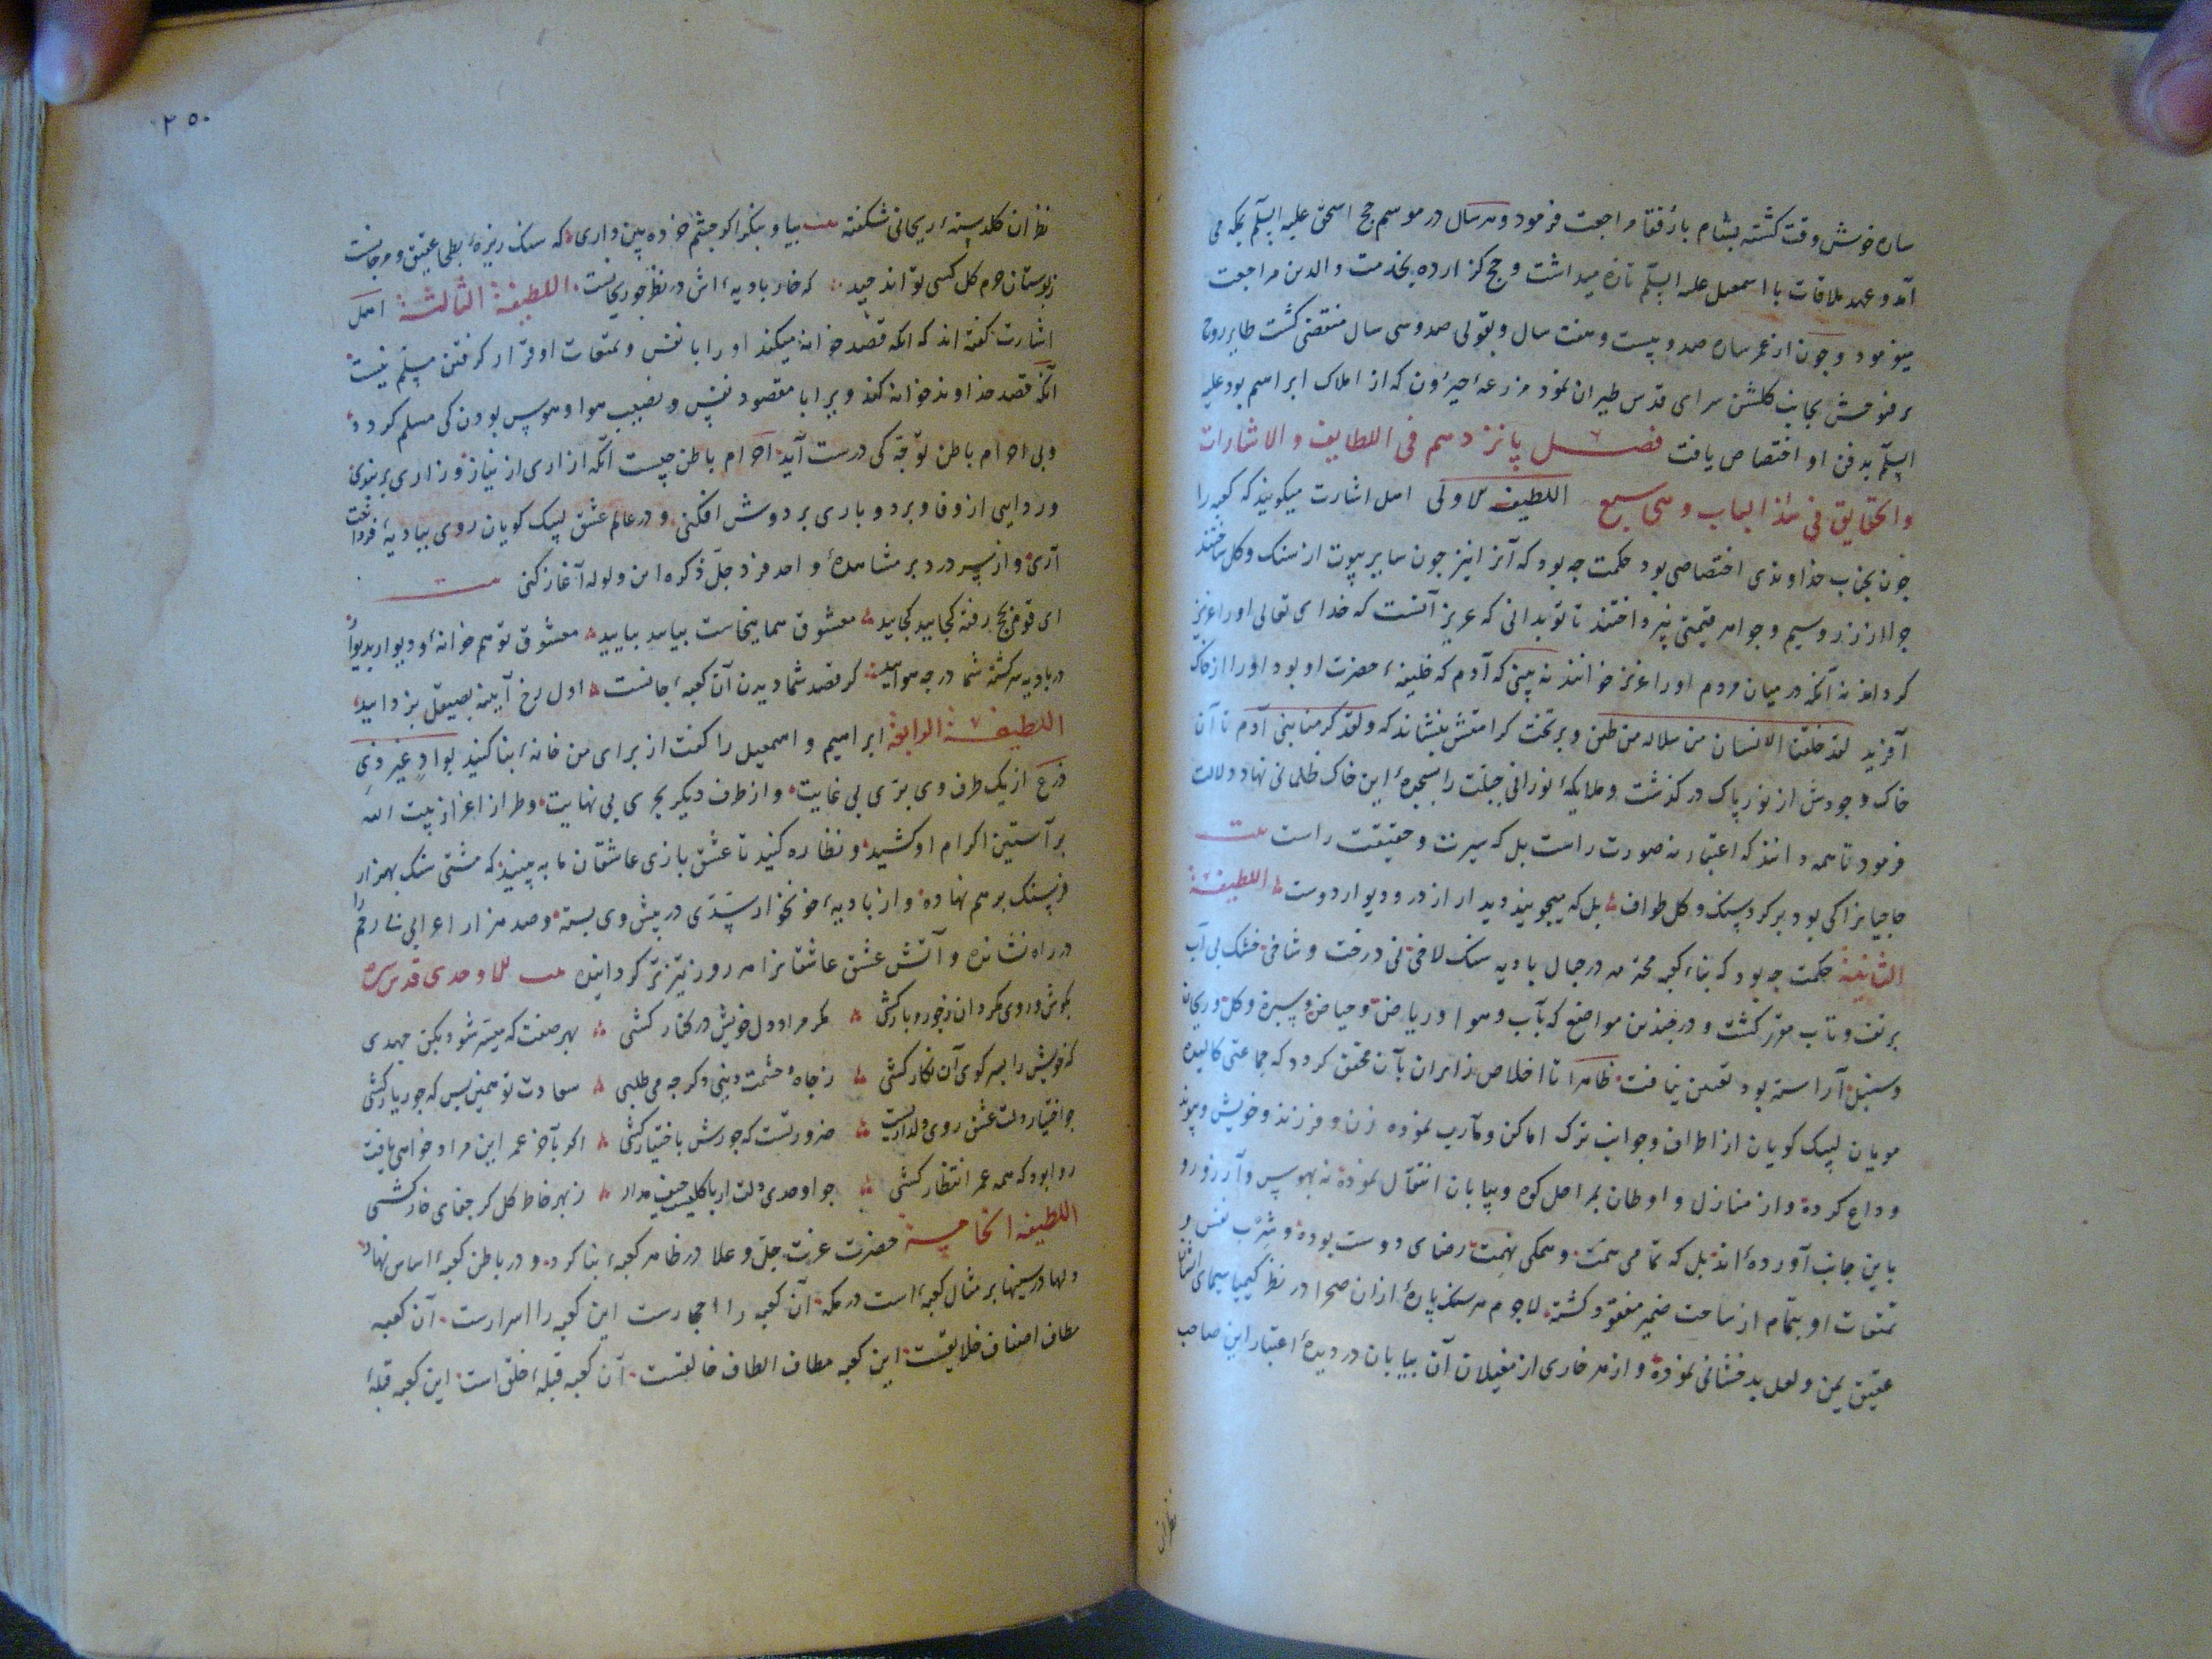 ساره خوش وقت کشته بشام با رفقا مراجعت فرمود و هر سال در موسم حج اسحق علیه السلم بمکه می
آمد و عهد ملاقات با اسمعیل علیه السلم تازه میداشت و حج کزارده بخدمت والدین مراجعت
میفرمود و چون از عمر ساره صد و بیست و هفت سال و بقولی صد و سی سال منقضی کشت طایر روح
پر فتوحش بجانب کلشن سرای قدس طیران نمود مزرعهٔ حیرون که از املاک ابراهیم بود علیه
السلم بدفن او اختصاص یافت فصل پانزدهم فی اللطایف و الاشارات
والحقایق فی هذا الباب وهی سبع اللطیفه الاولی اهل اشارت میکویند که کعبه را
چون بجناب خداوندی اختصاصی بود حکمت چه بود که آنرا نیز چون سایر بیوت از سنک و کل ساختند
چرا از زر و سیم و جواهر قیمتی نپرداختند تا تو بدانی که عزیز آنست که خدای تعالی او را عزیز
کرداند نه آنکه در میان مردم او را عزیز خوانند نه بینی که آدم که خلیفهٔ حضرت او بود او را از خاک
آفرید لقد خلقنا الانسان من سلاله من طین و بر تخت کرامتش بنشاند که ولقد کرمنا بنی آدم تا آن
خاک وجودش از نور پاک درکذشت و ملایکهٔ نورانی جبلت را بسجدهٔ این خاک ظلمانی نهاد دلالت
فرمود تا همه دانند که اعتبار نه صورت راست بل که سیرت و حقیقت راست بیت
حاجیانرا کی بود بر کرد سنک و کل طواف بل که میجویند دیدار از در و دیوار دوست اللطیفة
الثانیة حکمت چه بود که بناء کعبه محترمه در جبال بادیه سنک لاخی نی درخت و شاخی خشک بی آب
بر تف و تاب مقرر کشت و در چندین مواضع که بآب و هوا و ریاض و حیاض و سبزه و کل و ریحان
و سنبل آراسته بود تعیین نیافت ظاهرا تا اخلاص زایران بآن محقق کردد که جماعتی کالیده
مویان لبیک کویان از اطراف و جوانب ترک اماکن و مآرب نموده زن و فرزند و خویش و پیوند
وداع کرده و از منازل و اوطان بمراحل کوه و بیابان انتقال نموده نه بهوس و آرزو رو
باین جانب آورده اند بل که تمامی همت و همکی نهمت رضای دوست بوده و شرب نفس و
تمتعات او بتمام از ساحت ضمیر مفقود کشته لاجرم هر سنک پارهٔ ازان صحرا در نظر کیمیا سیمای ایشان
عقیق یمن و لعل بدخشانی نموده و از هر خاری از مغیلان آن بیابان در دیدهٔ اعتبار این صاحب
نظران
۲۵۰
نظران کلدستهٔ ریحانی شکفته بیت بیا و بنکر اکر چشم خرده بین داری که سنک ریزهٔ بطحی عقیق و مرجانست
زبوستان حرم کل کسی تواند چید که خار بادیه اش در نظر چو ریحانست اللطیفة الثالثة اهل
اشارت کفته اند که آنکه قصد خانه میکند او را با نفس و تمتعات او قرار کرفتن مسلم نیست
آنکه قصد خداوند خانه کند ویرا با مقصود نفس و نصیب هوا و هوس بودن کی مسلم کردد
و بی احرام باطن توجه کی درست آید احرام باطن چیست آنکه ازاری از نیاز و زاری بر بندی
و ردایی از وفا و بردباری بر دوش افکنی و در عالم عشق لبیک کویان روی ببادیهٔ فردانیت
آری و از سر درد بر مشاهدهٔ واحد فرد جل ذکره این ولوله آغاز کنی بیت
ای قوم بحج رفته کجایید کجایید معشوق همینجاست بیایید بیایید معشوق تو هم خانهٔ و دیوار بدیوار
در بادیه سرکشته شما در چه هوایید کر قصد شما دیدن آن کعبهٔ جانست اول رخ آیینه بصیقل بزدایید
اللطیفة الرابعة ابراهیم و اسمعیل را کفت از برای من خانهٔ بنا کنید بواد غیر ذی
زرع از یک طرف وی بری بی غایت و از طرف دیکر بحری بی نهایت و طراز اعزاز بیت الله
بر آستین اکرام او کشید و نظاره کنید تا عشق بازی عاشقان ما به بینید که مشتی سنک بهزار
فرسنک بر هم نهاده و از بادیهٔ خونخوار سدی در پیش وی بسته و صد هزار اعرابی بی رحم را
در راه نشانده و آتش عشق عاشقانرا هر روز تیزتر کردانیده بیت للاوحدی قدس سره
بکوش و روی مکردان ز جور و بارکشی مکر مراد دل خویش در کنار کشی بهر صفت که میسر شود بکن جهدی
که خویش را بسر کوی آن نکار کشی ز جاه و حشمت دنیی و کر چه می طلبی سعادت تو همین بس که جور یار کشی
چو اختیار دلت عشق روی دلداریست ضرورتست که جورش باختیار کشی اکر بآخر عمر این مراد خواهی یافت
روا بود که همه عمر انتظار کشی چو اوحدی دلت ار با کلیست حیف مدار ز بهر خاطر کل کر جفای خار کشی
اللطیفه الخامسة حضرت عزت جل و علا در ظاهر کعبهٔ بنا کرد و در باطن کعبهٔ اساس نهاد
دلها در سینها بر مثال کعبهٔ است در مکه آن کعبه را احجارست این کعبه را اسرارست آن کعبه
مطاف اصناف خلایقست این کعبه مطاف الطاف خالقست آن کعبه قبلهٔ خلق است این کعبه قبلهٔ